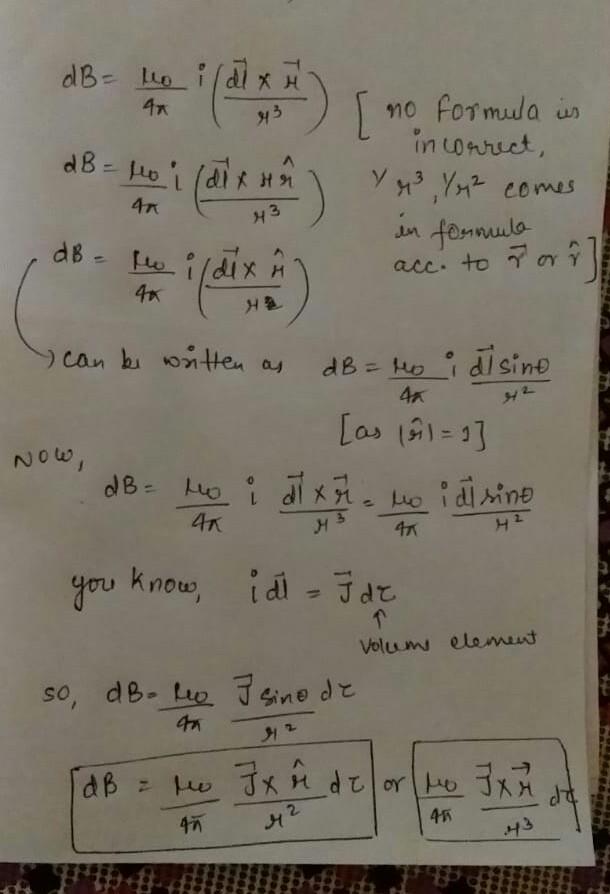 dB = μ₀/4π i (d⃗l × r⃗ / r³) [no formula is
incorrect,
1/r³, 1/r² comes
in formula
acc. to r⃗ or r̂]
dB = μ₀/4π i (d⃗l × r r̂ / r³)
dB = μ₀/4π i (d⃗l × r̂ / r²)
→ can be written as dB = μ₀/4π i d⃗l sinθ / r²
[as |r̂| = 1]
NOW,
dB = μ₀/4π i d⃗l × r⃗ / r³ = μ₀/4π i d⃗l sinθ / r²
you know, i d⃗l = J⃗ dτ
↑
volume element
so, dB = μ₀/4π J⃗ sinθ / r² dτ
dB = μ₀/4π J⃗ × r̂ / r² dτ or μ₀/4π J⃗ × r⃗ / r³ dτ